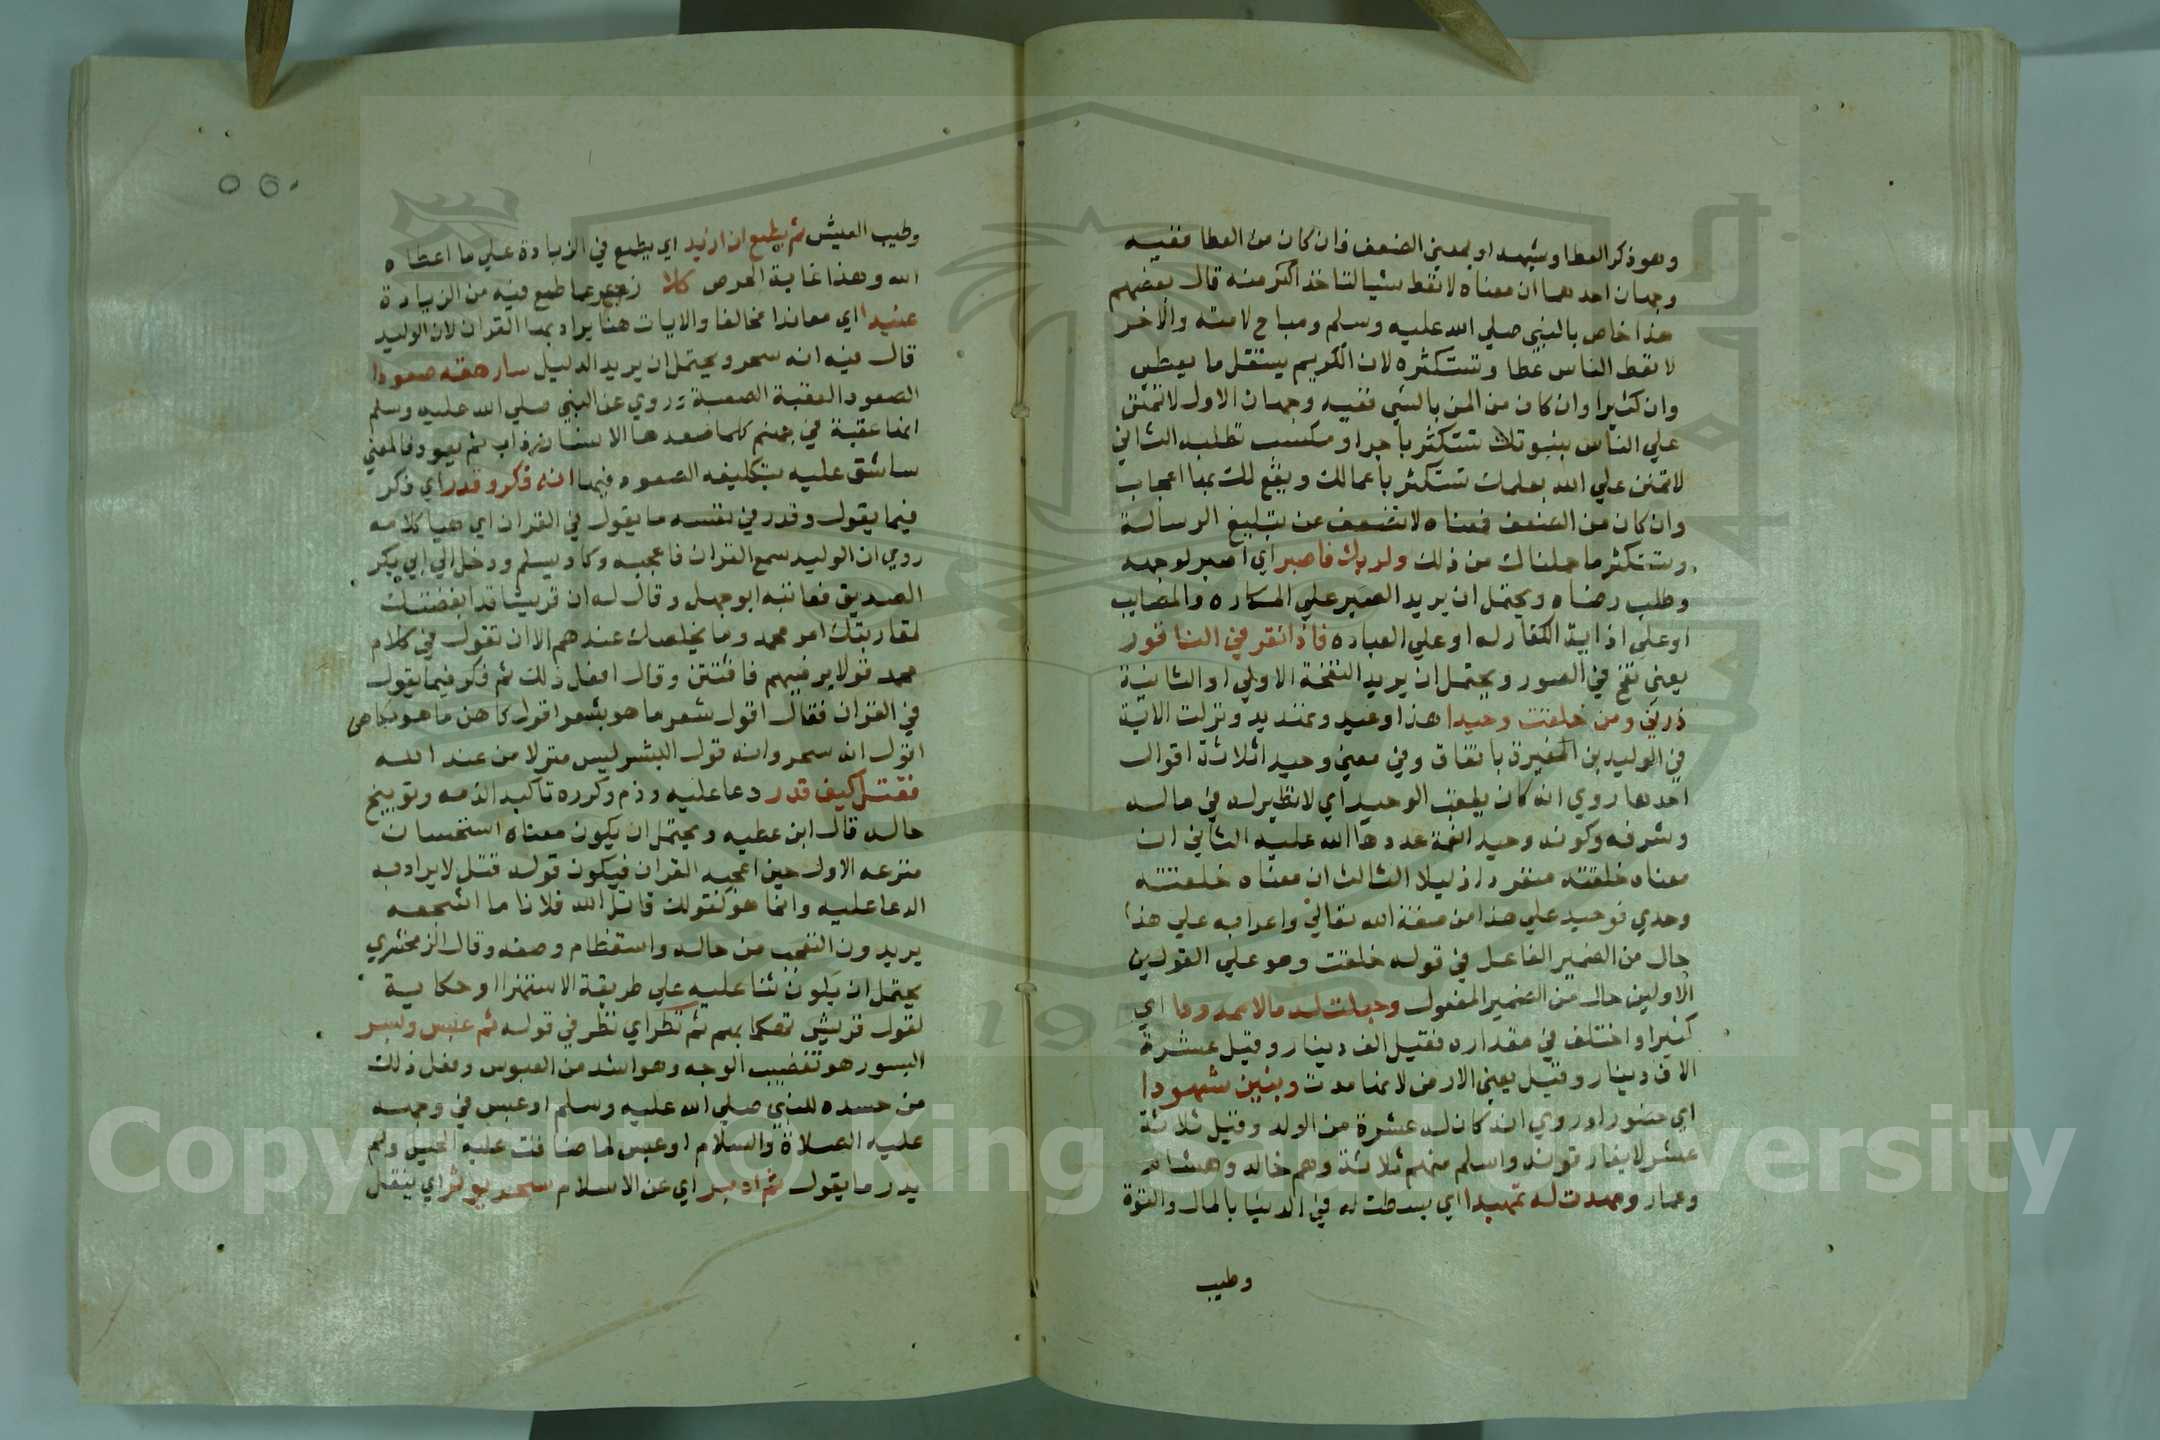 وهو ذكر العطا وشبهه او بمعني الضعف فان كان من العطا ففيه
وجهان احدهما ان معناه لا تعط شيا لتاخذ اكثر منه قال بعضهم
هذا خاص بالنبي صلي الله عليه وسلم ومباح لامته والاخر
لا تعط الناس عطا وتستكثره لان الكريم يستقل ما يعطي
وان كثيرا وان كان من المن بالشي ففيه وجهان الاول لا تمنن
علي الناس بنبوتك تستكثر باجر او مكسب تطلبه الثاني
لا تمنن علي الله بعملك تستكثر باعمالك ويقع لك بها اعجاب
وان كان من الضعف فمعناه لا تضعف عن تبليغ الرسالة
وتستكثر ما حملناك من ذلك ولربك فاصبر اي اصبر لوجهه
وطلب رضاه ويحتمل ان يريد الصبر علي المكاره والمصايب
او علي اذاية الكفار له او علي العباده فاذا نقر في الناقور
يعني نفخ في الصور ويحتمل ان يريد النفخة الاولي او الثانية
ذرني ومن خلقت وحيدا هذا وعيد وتهديد ونزلت الاية
في الوليد بن المغيرة باتفاق وفي معني وحيد اثلاثة اقوال
احدها روي انه كان يلقب الوحيد اي لا نظير له في ماله
وشرفه وكونه وحيد انعمة عددها الله عليه الثاني ان
معناه خلقته منفردا ذليلا الثالث ان معناه خلقته
وحدي فوحيد علي هذا من صفة الله تعالي واعرابه علي هذا
حال من الضمير الفاعل في قوله خلقت وهو علي القولين
الاولين حال من الضمير المفعول وجعلت له مالا ممدودا اي
كثيرا واختلف في مقداره فقيل الف دينار وقيل عشرة
الاف دينار وقيل يعني الارض لانها مدت وبنين شهودا
اي حضورا وروي انه كان له عشرة من الولد وقيل ثلاثة
عشر لا يفارقونه واسلم منهم ثلاثة وهم خالد وهشام
وعمار ومهدت له تمهيدا اي بسطت له في الدنيا بالمال والقوة
وطيب
٥٥٠
وطيب العيش ثم يطمع ان ازيد اي يطمع في الزيادة علي ما اعطاه
الله وهذا غاية الحرص كلا زجر عما طمع فيه من الزيادة
عنيدا اي معاندا مخالفا والايات هنا يراد بها القران لان الوليد
قال فيه انه سحر ويحتمل ان يريد الدليل سارهقه صعودا
الصعود العقبة الصعبة وروي عن النبي صلي الله عليه وسلم
انها عقبة في جهنم كلما صعدها الانسان ذاب ثم يعود فالمعني
ساشق عليه بتكليفه الصعود فيها انه فكر وقدر اي ذكر
فيما يقول وقدر في نفسه ما يقول في القران اي هيا كلامه
روي ان الوليد سمع القران فاعجبه وكاد يسلم ودخل الي ابي بكر
الصديق فعاتبه ابو جهل وقال له ان قريشا قد ابغضتك
لمقاربتك امر محمد وما يخلصك عندهم الا ان تقول في كلام
محمد قولا يرضيهم فافتتن وقال افعل ذلك ثم فكر فيما يقول
في القران فقال اقول شعر ما هو بشعر اقول كاهن ما هو بكاهن
اقول انه سحر وانه قول البشر ليس منزلا من عند الله
فقتل كيف قدر دعا عليه وذم وكرره تاكيد الذمه وتوبيخ
حاله قال ابن عطيه ويحتمل ان يكون معناه استحسان
منزعه الاول حين اعجبه القران فيكون قوله قتل لا يراد به
الدعا عليه وانما هو كقولك قاتل الله فلانا ما اشجعه
يريدون التعجب من حاله واستعظام وصفه وقال الزمخشري
يحتمل ان يكون ثنا عليه علي طريقة الاستهزا او حكاية
لقول قريش تهكما بهم ثم نظر اي نظر في قوله ثم عبس وبسر
البسور هو تقضيب الوجه وهو اشد من العبوس وفعل ذلك
من حسده للنبي صلي الله عليه وسلم او عبس في وجهه
عليه الصلاة والسلام او عبس لما ضاقت عليه الحيل ولم
يدر ما يقول ثم ادبر اي عن الاسلام سحر يوثر اي ينقل
Copyright © King Saud University
195